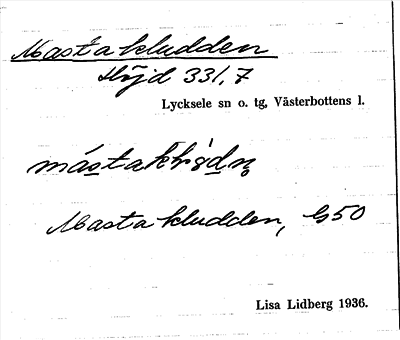 Mastakludden
Höjd 331,7
Lycksele sn o. tg, Västerbottens l.
Mastakludden, G50
Lisa Lidberg 1936.